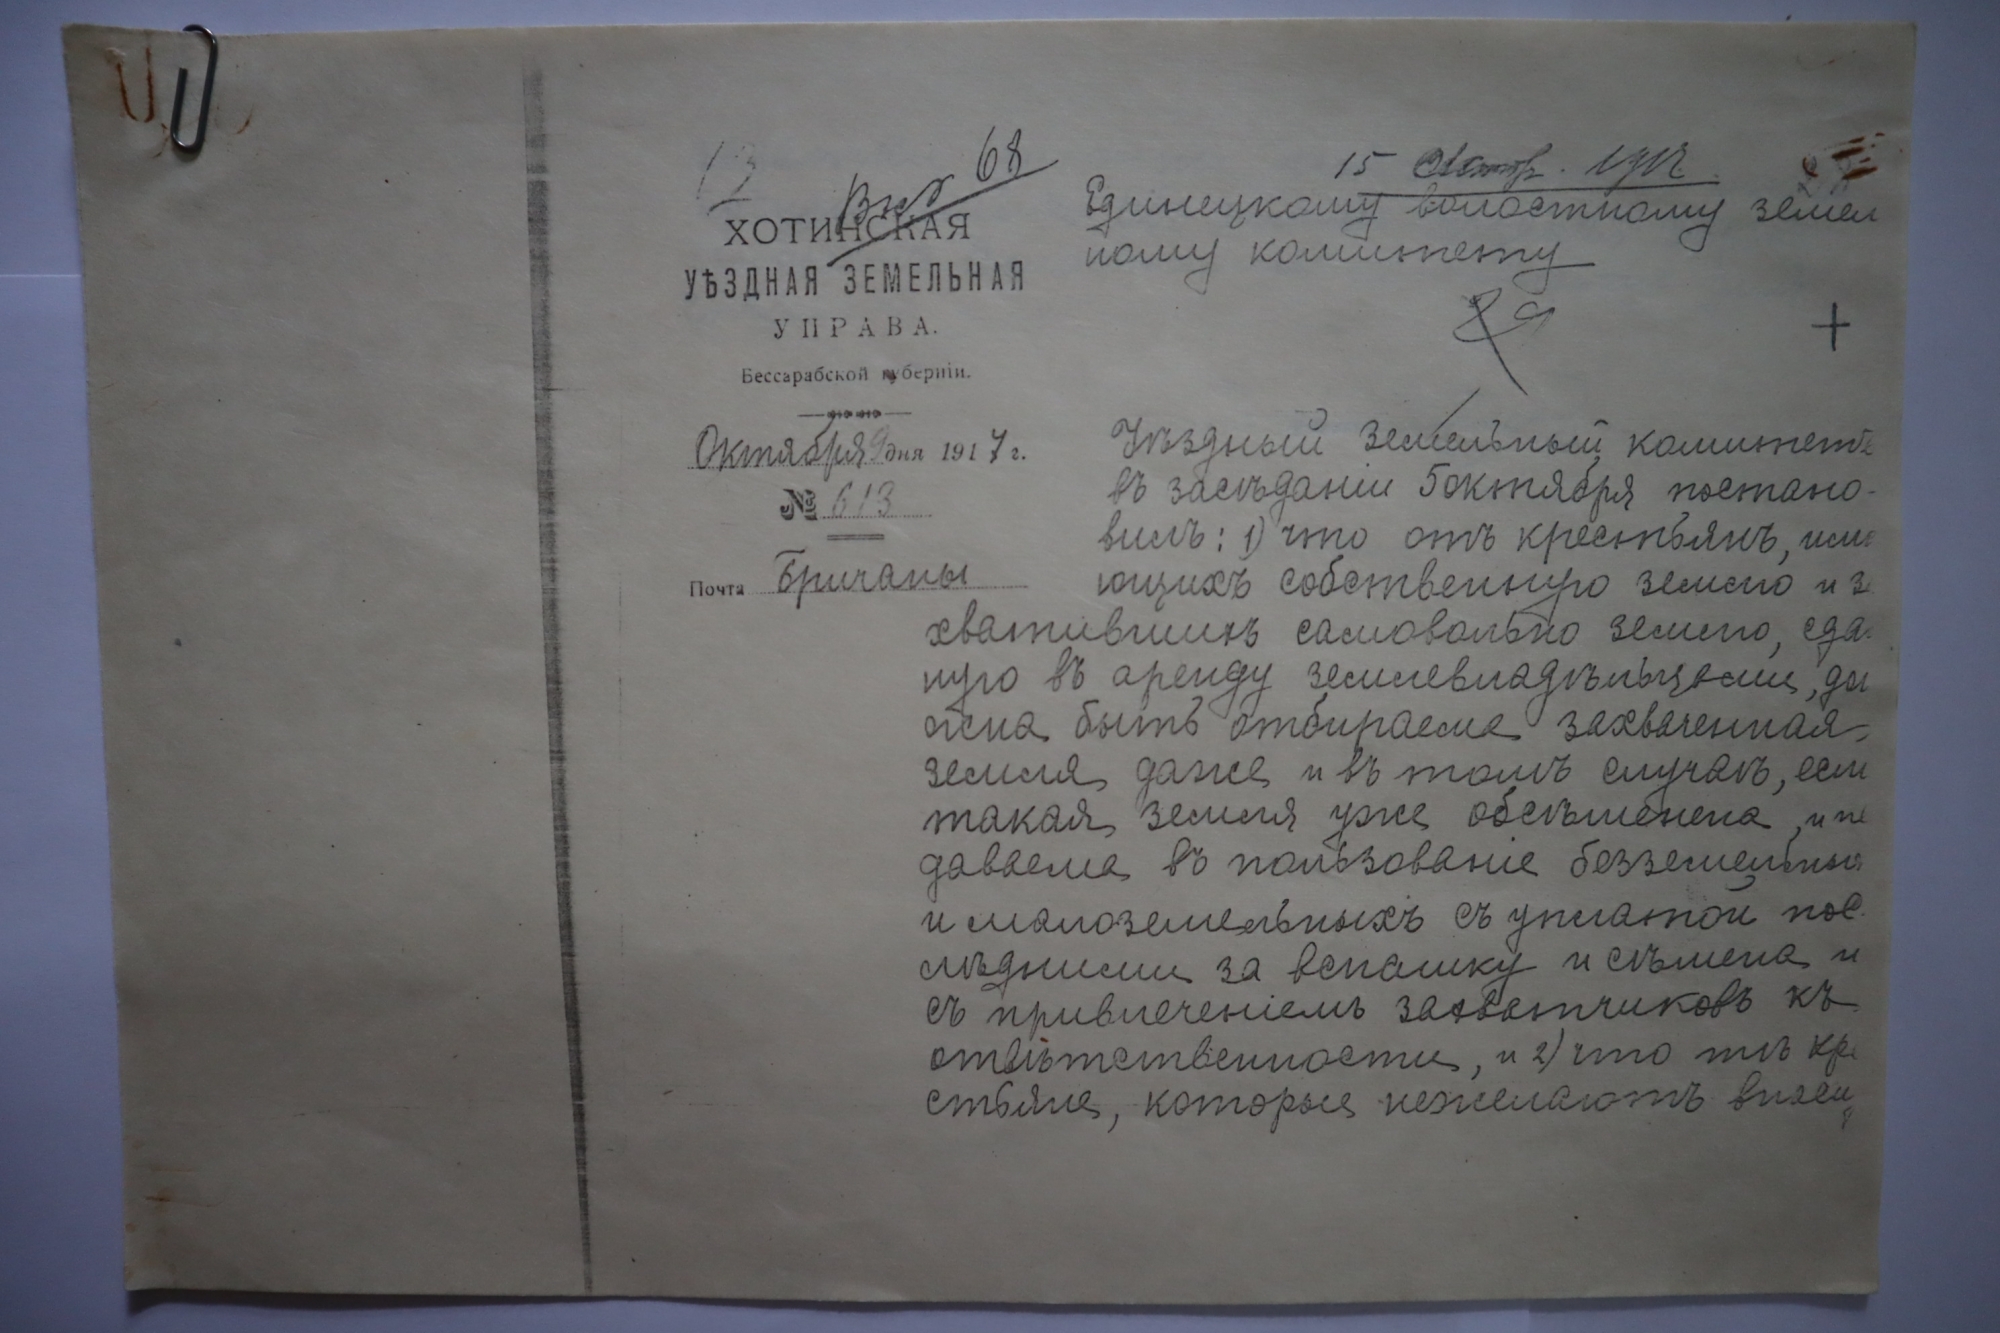 12
Вх. 68
ХОТИНСКАЯ
УѢЗДНАЯ ЗЕМЕЛЬНАЯ
УПРАВА.
Бессарабской губерніи.
Октября 9 дня 1917 г.
№ 613
Почта Бричаны
15 Октбр. 1917
Единецкому волостному земель
ному комитету
Уѣздный Земельный комитетъ
въ засѣданіи 5 октября постано-
вилъ: 1) что отъ крестьянъ, имѣ
ющихъ собственную землю и за
хватившихъ самовольно землю, сдан
ную въ аренду землевладѣльцами, дол
жна быть отбираема захваченная
земля, даже и въ томъ случаѣ, если
такая земля уже обсѣменена, и пе
даваема въ пользованіе безземельных
и малоземельныхъ съ уплатой пос-
лѣдними за вспашку и сѣмена и
съ привлеченіемъ захватчиковъ къ
отвѣтственности, и 2) что тѣ кре
стьяне, которые нежелаютъ